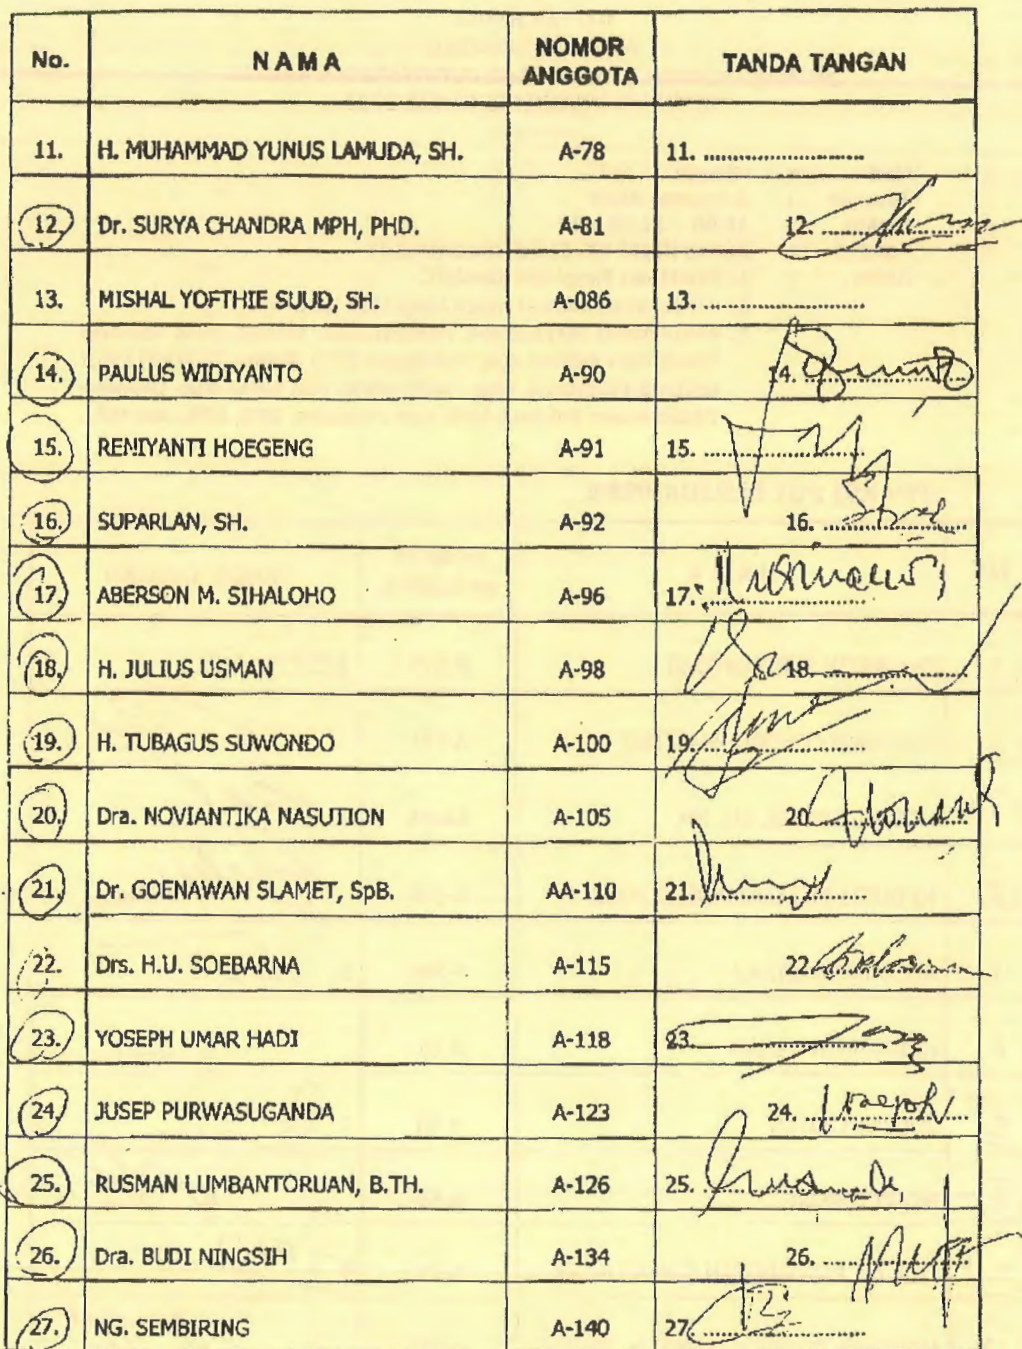 No. NAMA NOMOR ANGGOTA TANDA TANGAN
11. H. MUHAMMAD YUNUS LAMUDA, SH. A-78 11. ............................
12. Dr. SURYA CHANDRA MPH, PHD. A-81 12. ............................
13. MISHAL YOFTHIE SUUD, SH. A-086 13. ............................
14. PAULUS WIDIYANTO A-90 14. ............................
15. RENIYANTI HOEGENG A-91 15. ............................
16. SUPARLAN, SH. A-92 16. ............................
17. ABERSON M. SIHALOHO A-96 17. ............................
18. H. JULIUS USMAN A-98 18. ............................
19. H. TUBAGUS SUWONDO A-100 19. ............................
20. Dra. NOVIANTIKA NASUTION A-105 20. ............................
21. Dr. GOENAWAN SLAMET, SpB. AA-110 21. ............................
22. Drs. H.U. SOEBARNA A-115 22. ............................
23. YOSEPH UMAR HADI A-118 23. ............................
24. JUSEP PURWASUGANDA A-123 24. ............................
25. RUSMAN LUMBANTORUAN, B.TH. A-126 25. ............................
26. Dra. BUDI NINGSIH A-134 26. ............................
27. NG. SEMBIRING A-140 27. ............................